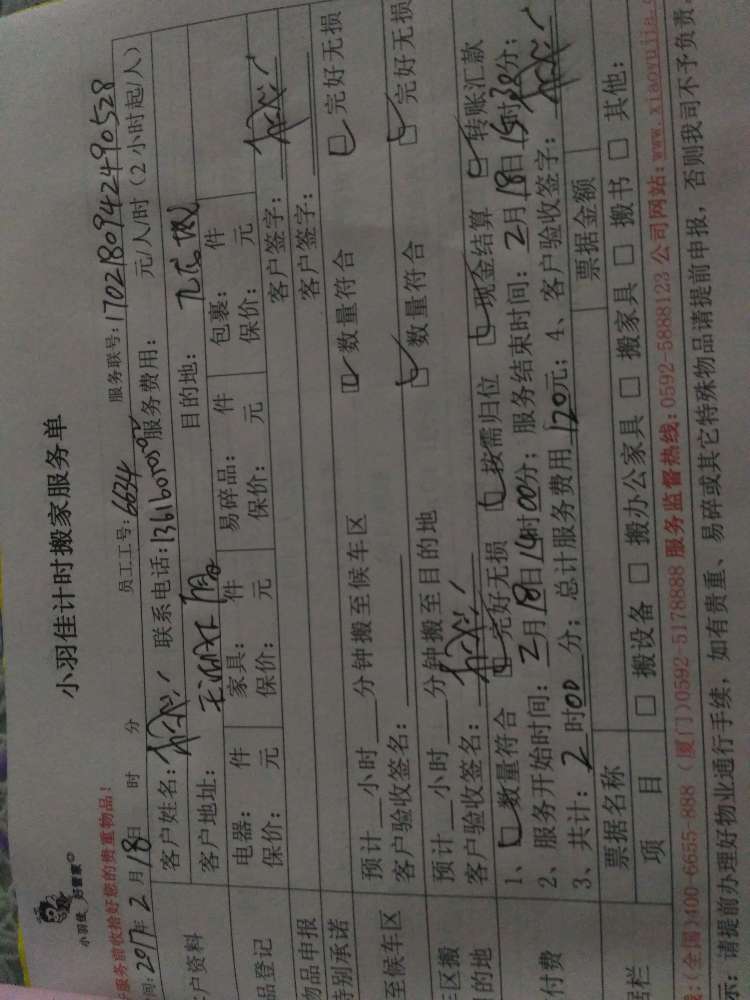 小羽佳 好管家
小羽佳计时搬家服务单
服务前收拾好您的贵重物品!
间: 2017年2月18日 时 分 员工工号: 6634 服务联号: 1702180942490528
客户姓名: 联系电话: 服务费用: 元/人/时 (2小时起/人)
户资料 客户地址: 目的地:
品登记 电器: 件 家具: 件 易碎品: 件 包裹: 件
保价: 元 保价: 元 保价: 元 保价: 元
物品申报 客户签字:
特别承诺 客户签字:
至候车区 预计 小时 分钟搬至候车区 □ 数量符合 □ 完好无损
客户验收签名:
区搬 预计 小时 分钟搬至目的地 □ 数量符合 □ 完好无损
的地 客户验收签名:
1、□ 数量符合 □ 完好无损 □ 按需归位 □ 现金结算 □ 转账汇款
付费 2、服务开始时间: 2月18日14时00分; 服务结束时间: 2月18日15时30分;
3、共计: 2时00分; 总计服务费用120元; 4、客户验收签字:
据栏 票据名称 票据金额
项 目 □ 搬设备 □ 搬办公家具 □ 搬家具 □ 搬书 □ 其他:
线:(全国)400-6655-888 (厦门)0592-5178888 服务监督热线: 0592-5888123 公司网站: www.xiaoyujia.c
示: 请提前办理好物业通行手续, 如有贵重、易碎或其它特殊物品请提前申报, 否则我司不予负责。